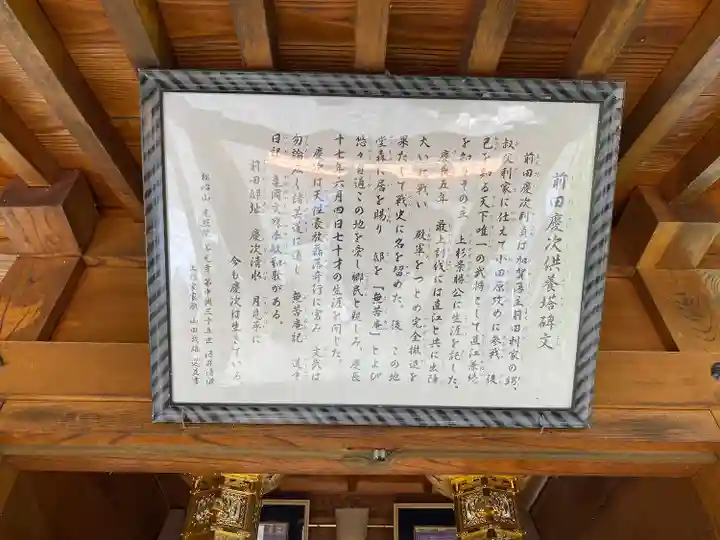 前田慶次供養塔碑文
前田慶次利貞は加賀藩主前田利家の甥、
叔父利家に仕えて小田原攻めに参戦、後
己を知る天下唯一の武将として直江兼続
を知りその主 上杉景勝公に生涯を託した。
慶長五年 最上討伐には直江と共に出陣
大いに戦い 殿軍をつとめ完全撤退を
果たして戦史に名を留めた。後 この地
堂森に居を賜り 邸を「無苦庵」とよび
悠々自適この地を愛し郷民と親しみ、慶長
十七年六月四日七十才の生涯を閉じた。
慶次は天性豪放磊落奇行に富み 文武は
勿論 広く諸芸道に通じ 無苦庵記 道中
日記 亀岡文殊奉納和歌がある。
前田邸址 慶次清水 月見平に
今も慶次は生きている
松心山 光照院 善光寺 第中興三十五世
山田武雄